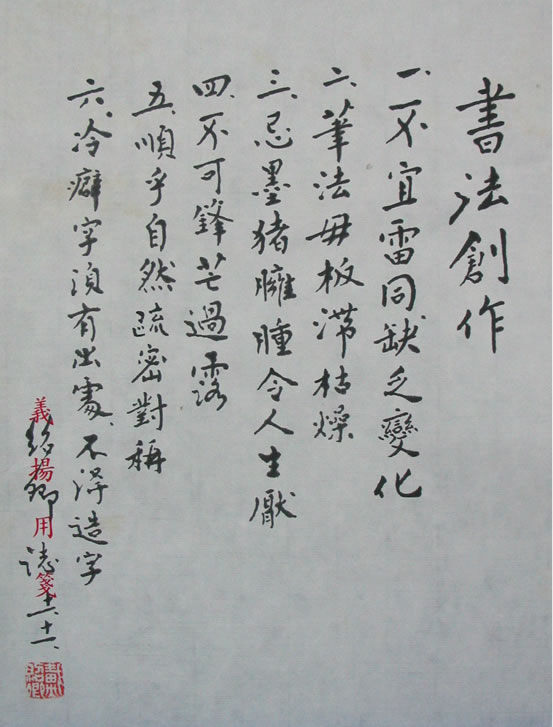 書法創作
一、不宜雷同缺乏變化
二、筆法毋板滯枯燥
三、忌墨猪臃腫令人生厭
四、不可鋒芒過露
五、順乎自然疏密對稱
六、冷癖字須有出處、不得造字
紹卿誌
義揚用箋